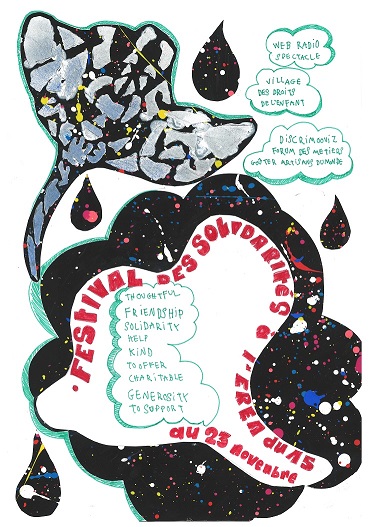 WEB RADIO
SPECTACLE
VILLAGE
DES DROITS
DE L'ENFANT
DISCRIMOQUIZ
FORUM DES METIERS
GOÛTER ARTISANS DU MONDE
FESTIVAL DES SOLIDARITÉS à l'EREA du 15
au 23 novembre
THOUGHTFUL
FRIENDSHIP
SOLIDARITY
HELP
KIND
TO OFFER
CHARITABLE
GENEROSITY
TO SUPPORT